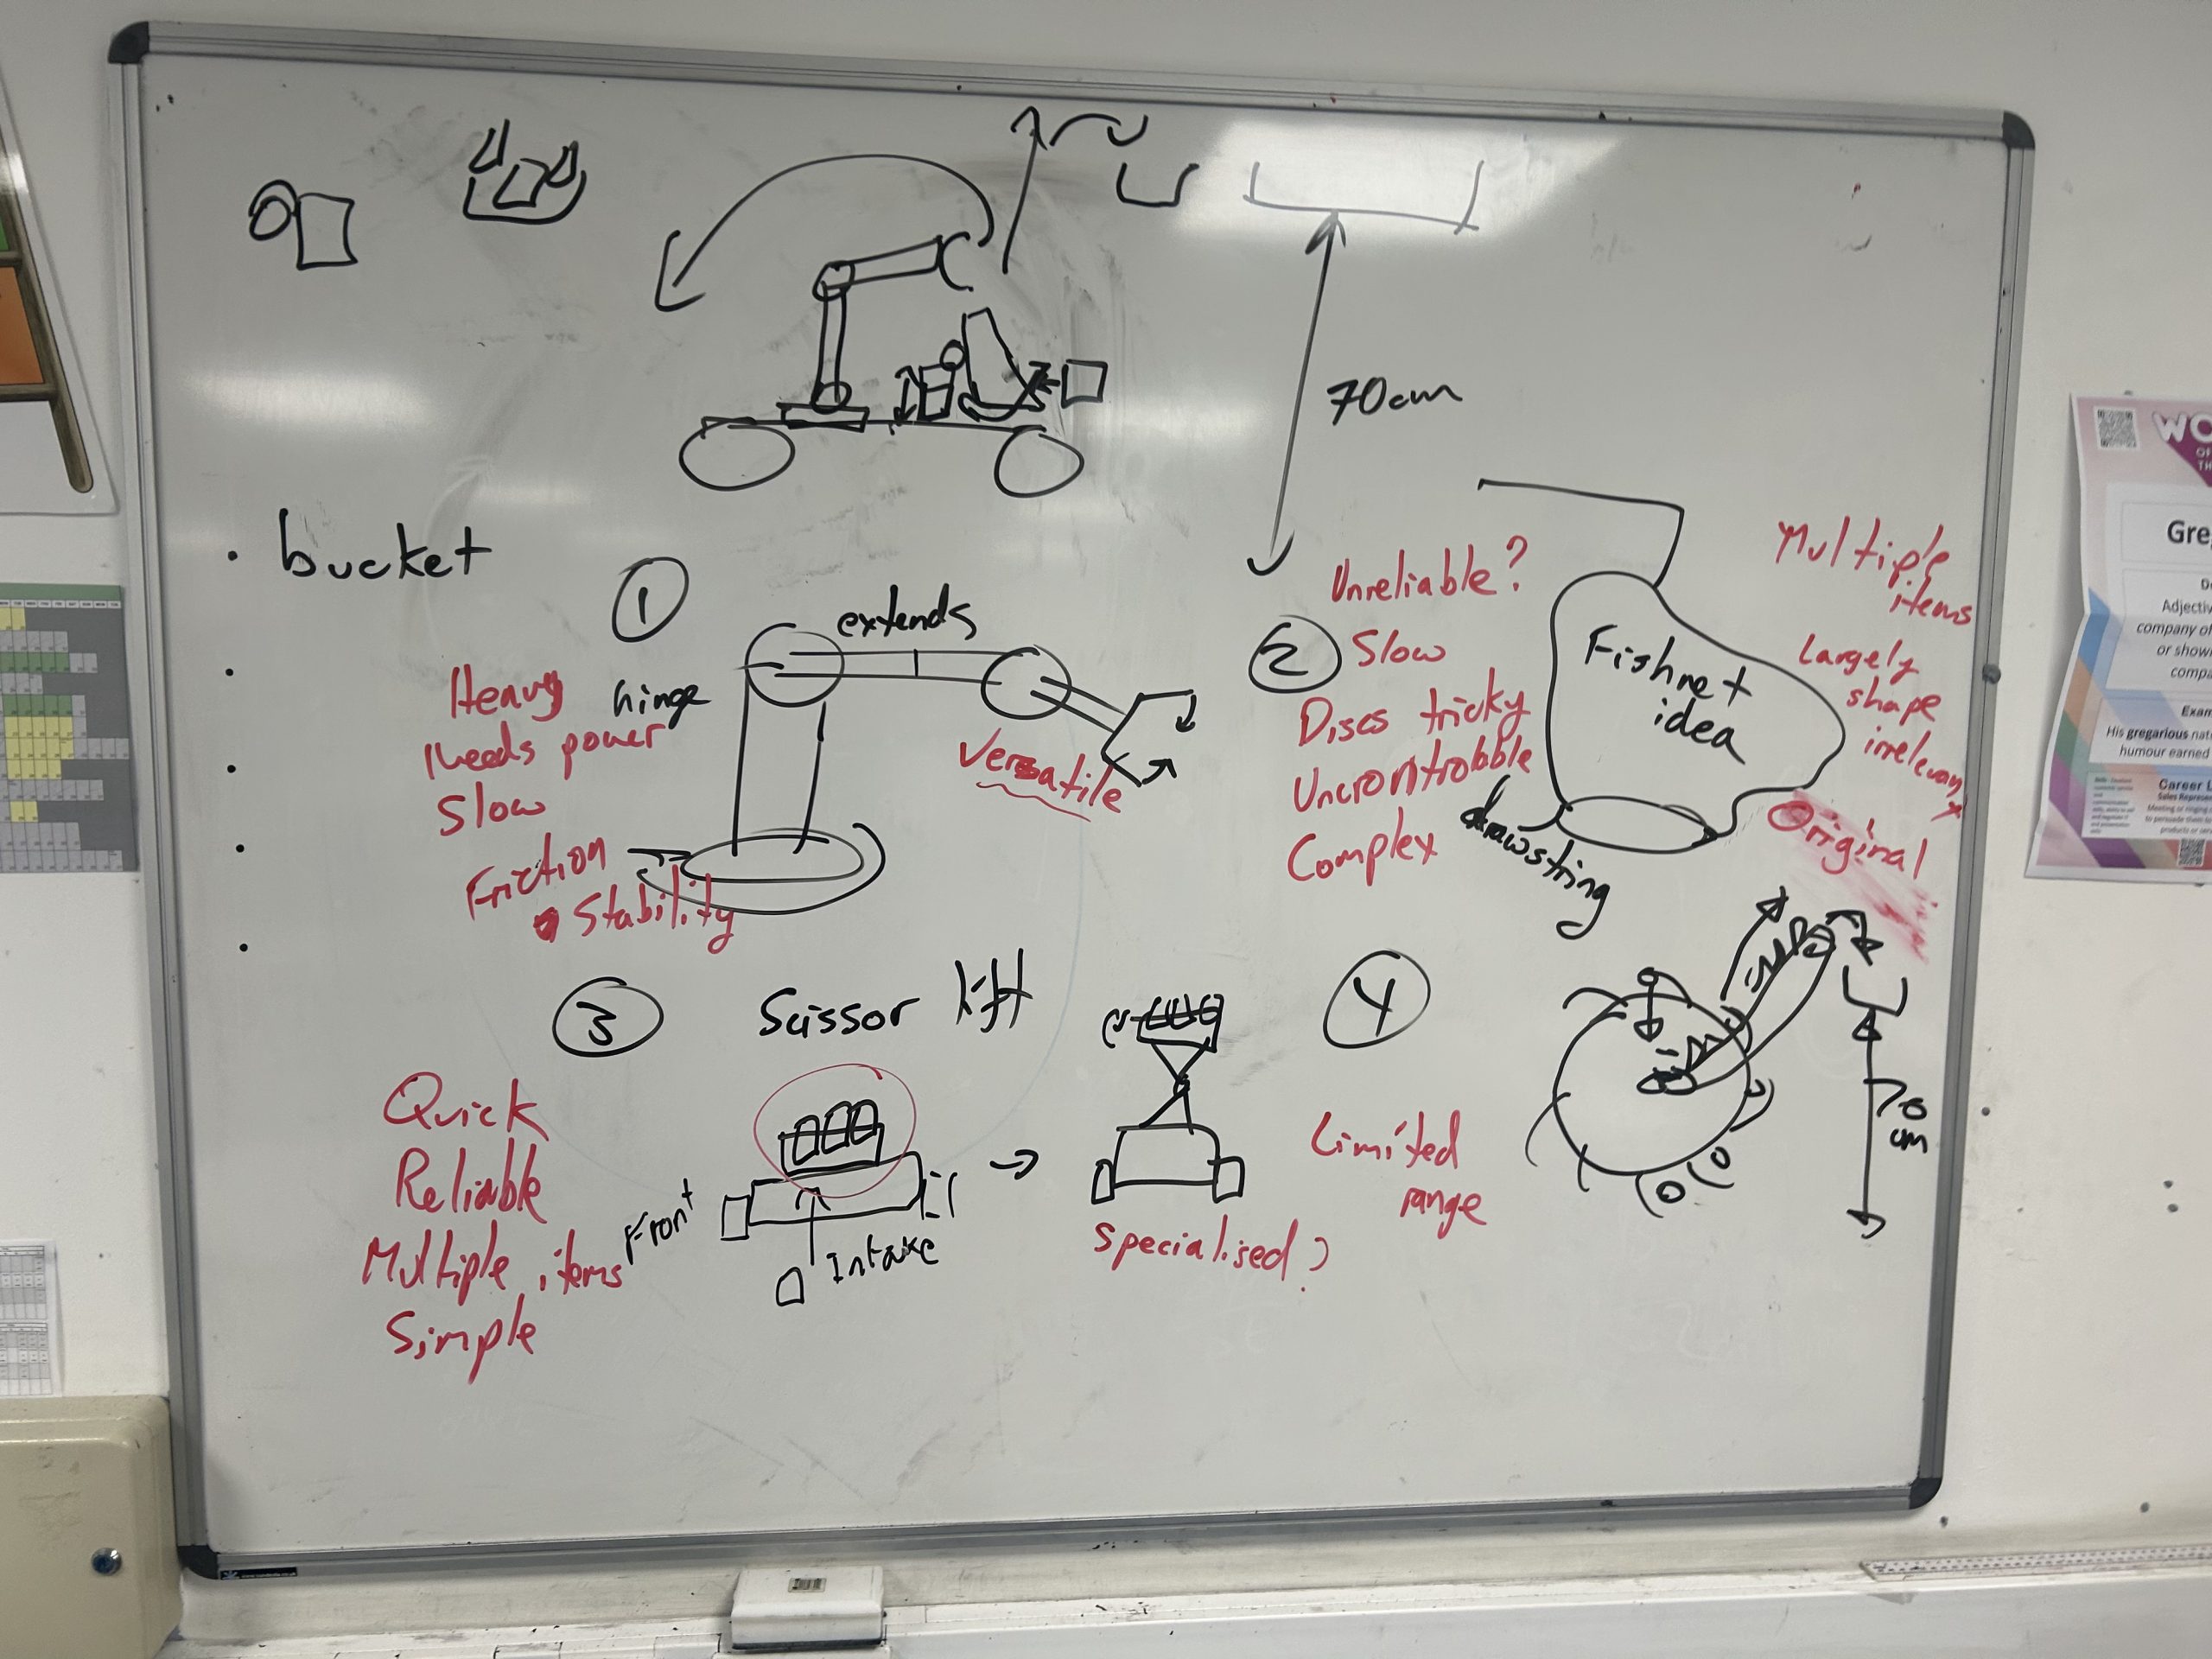 70cm
• bucket
①
extends
hinge
Heavy
Needs power
Slow
Friction
Stability
Versatile
②
Unreliable?
Slow
Discs tricky
Uncrontrobble
Complex
Fishnet
idea
drawstring
Multiple
items
Largely
shape
irrelevant
Original
③
Scissor lift
Quick
Reliable
Multiple items
Simple
Front
Intake
Specialised?
④
Limited
range
70
cm
WO
OF
TH
Gre
Adjectiv
company of
or show
compa
Exam
His gregarious nat
humour earned
Career L
Sales Represen